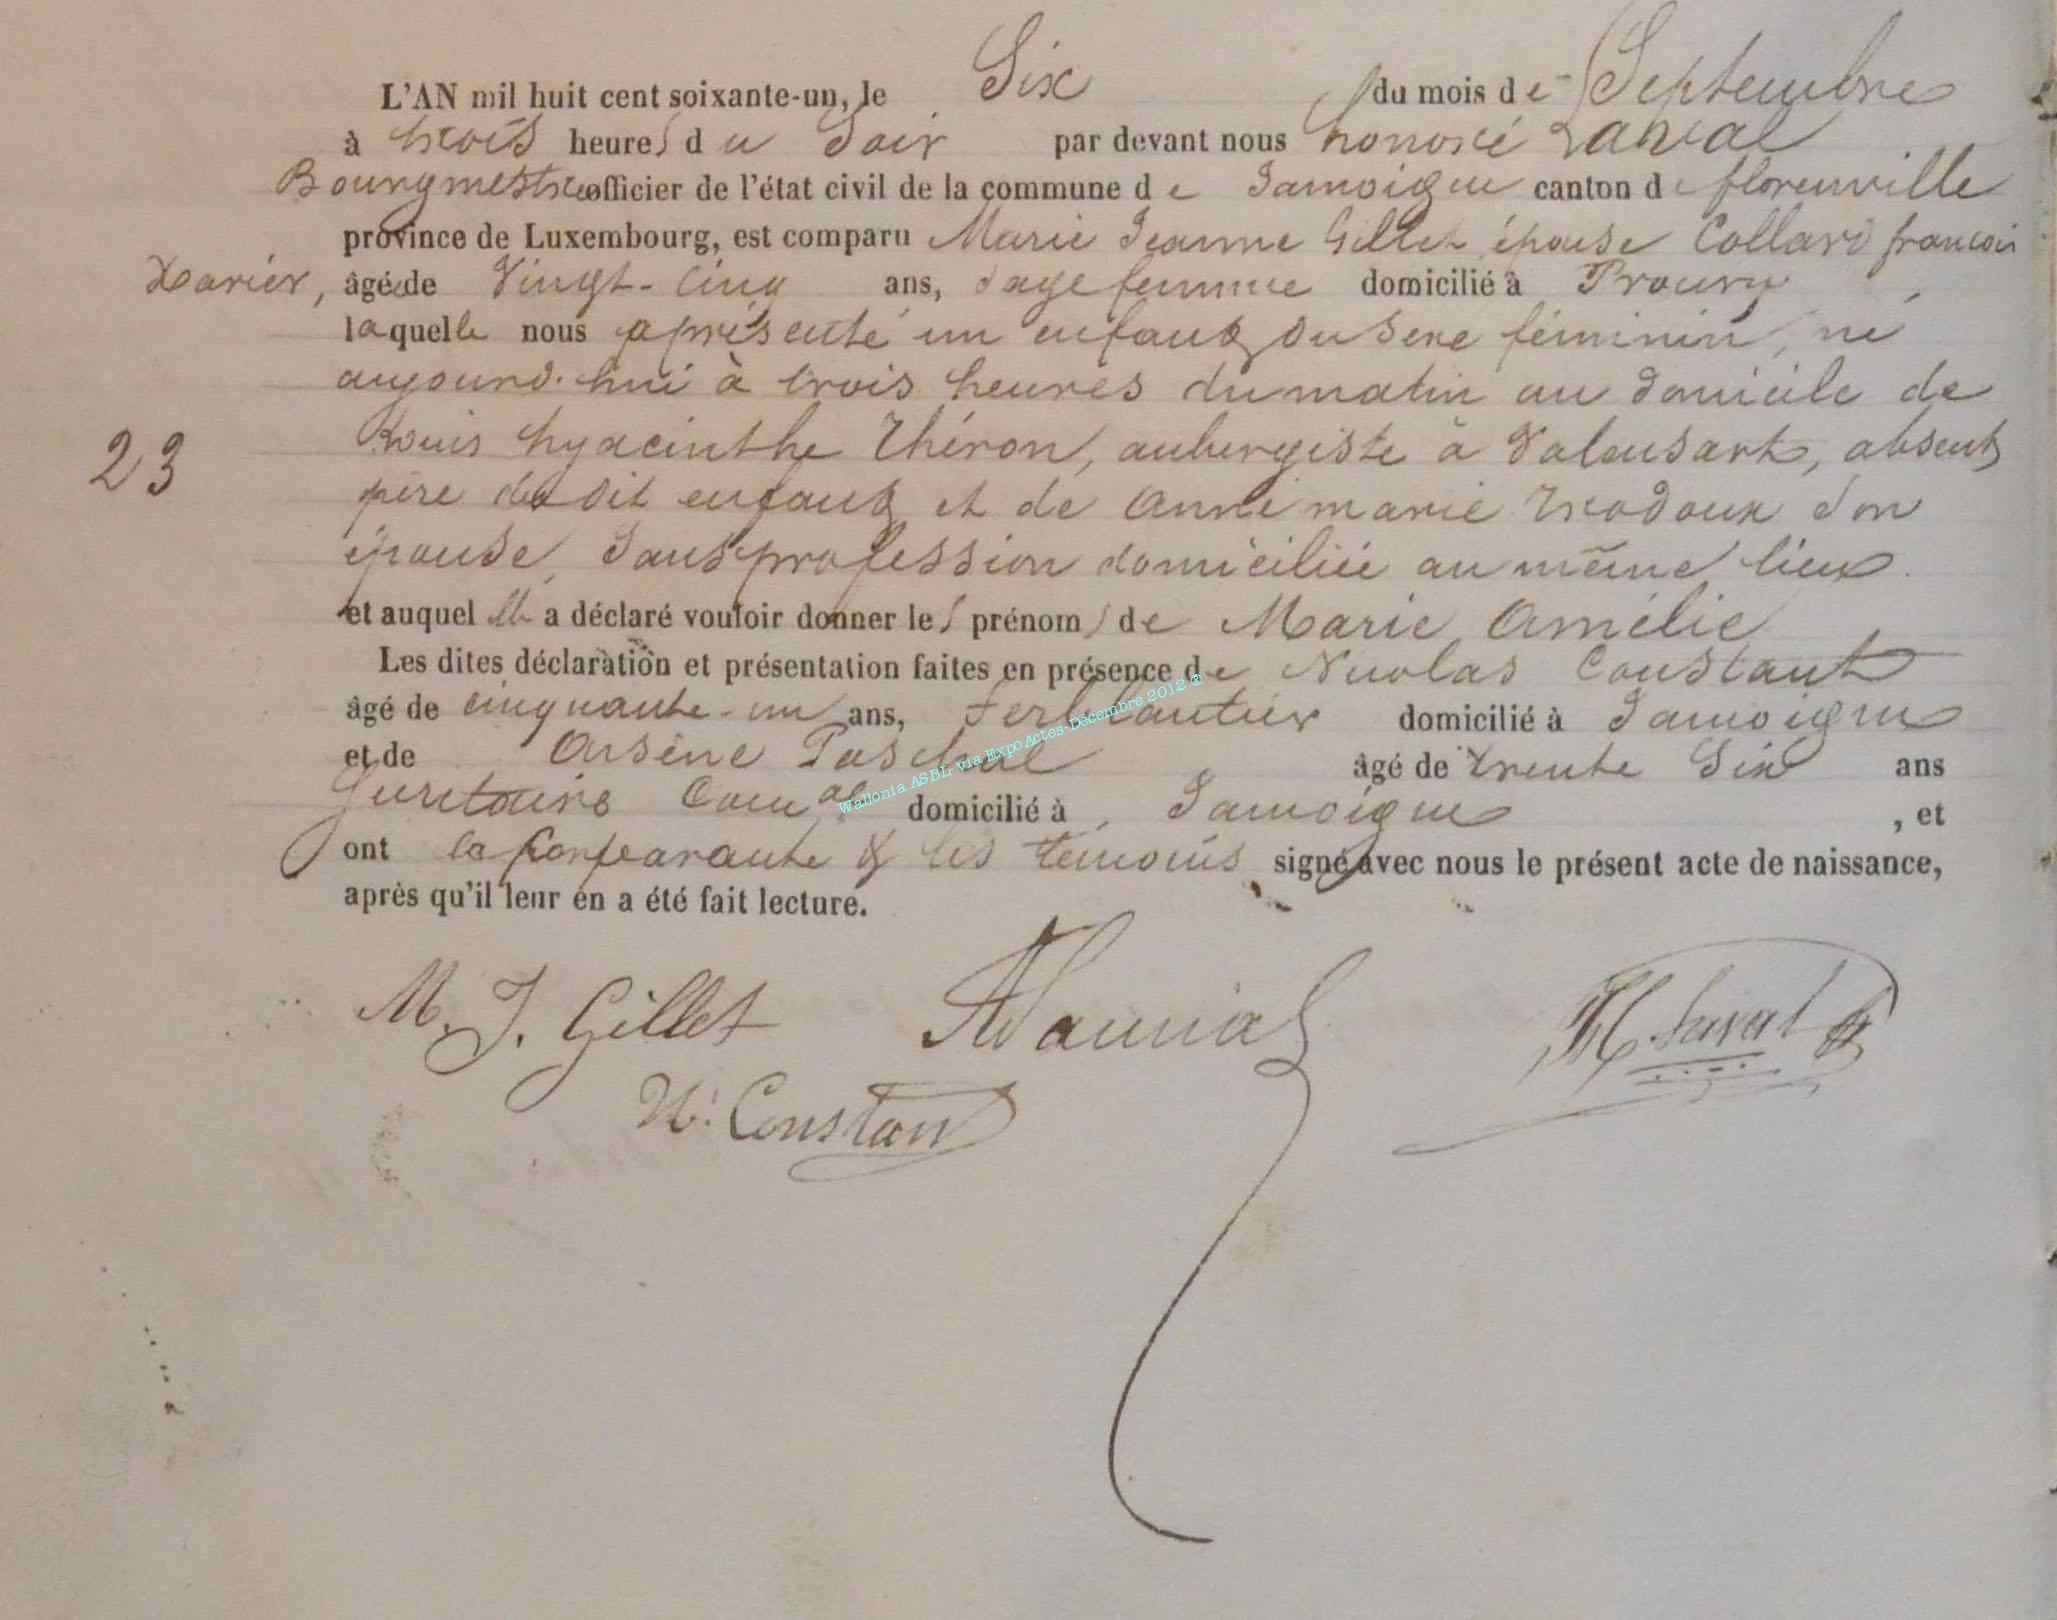 L'AN mil huit cent soixante-un, le Six du mois de Septembre
à trois heures du Soir par devant nous honoré Laval
Bourgmestre officier de l'état civil de la commune de Jamoigne canton de florenville
province de Luxembourg, est comparu Marie Jeanne Gillet épouse Collard francois
Xavier, âgée de Vingt-cinq ans, Sage femme domicilié à Prouvy
laquelle nous a présenté un enfant du sexe féminin, né
aujourd'hui à trois heures du matin au domicile de
23
Louis hyacinthe Théron, aubergiste à Valansart, absent
père du dit enfant et de anne marie Trodoux son
épouse, Sans profession domiciliée au même lieu.
et auquel elle a déclaré vouloir donner les prénoms de Marie Amélie
Les dites déclaration et présentation faites en présence de Nicolas Constant
âgé de cinquante-un ans, Ferblantier domicilié à Jamoigne
et de Arsène Paschal âgé de trente Six ans
Secrétaire Comal domicilié à Jamoigne , et
ont la Comparante & les témoins signé avec nous le présent acte de naissance,
après qu'il leur en a été fait lecture.
Wallonia ASBL- via ExpoActes-Décembre 2012 à
M. J. Gillet
H Laval
N. Constant